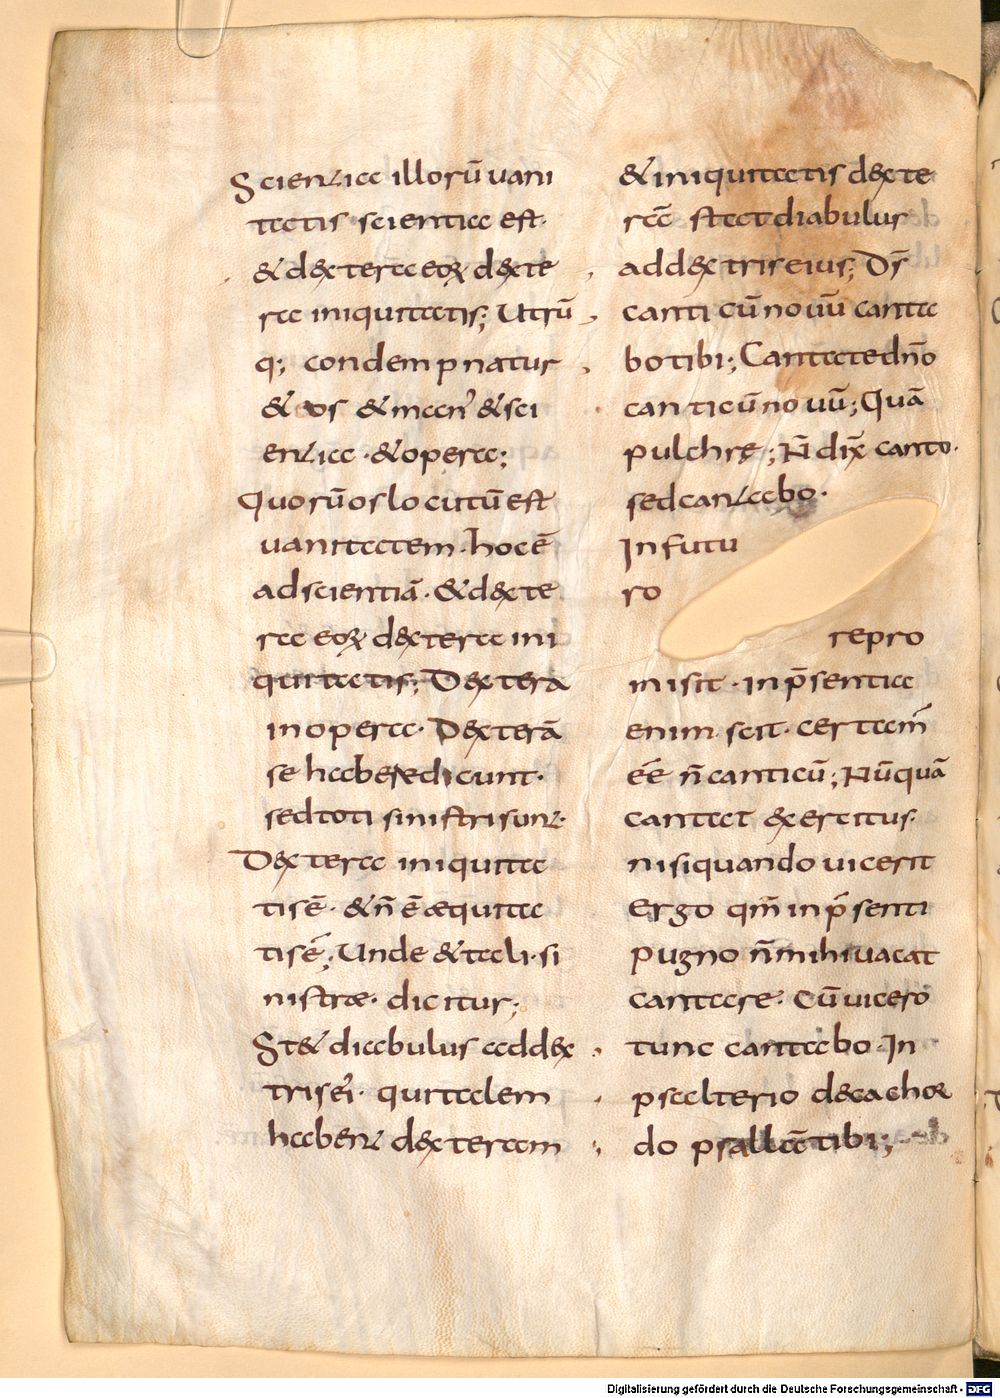 Scientiae illorū uani
tatis scientia est·
& dextera eoꝝ dexte
ra iniquitatis; Utrū
q; condempnatur
& os & man' & sci
entia · & opera;
Quorū os locutū est
uanitatem · hoc ē
ad scientiā · & dexte
ra eoꝝ dextera ini
quitatis; Dextera
in opera· Dexterā
se habere dicunt·
sed toti sinistri sunt·
Dextera iniquita
tis ē· & ñ ē æquita
tis ē; Unde & tali· si
nistræ· dicitur;
St& diabulus ad dex
tris ei· qui talem
habent dexteram
& iniquitatis dexte
rā stat diabulus
ad dextris eius; Ds̄
canticū nouū canta
bo tibi; Cantate dño
canticū nouū; Quā
pulchrę; Ñ dix̄ canto·
sed cantabo·
In futu
ro
repro
misit · in p̄sentia
enim scit· certam̄
ēē ñ canticū; Nūquā
cantat exercitus·
nisi quando uicerit
Ergo qm̄ in p̄senti
pugno ñ mihi uacat
cantare· Cū uicero
tunc cantabo· In
psalterio decachor
do psallā tibi;
Digitalisierung gefördert durch die Deutsche Forschungsgemeinschaft - DFG